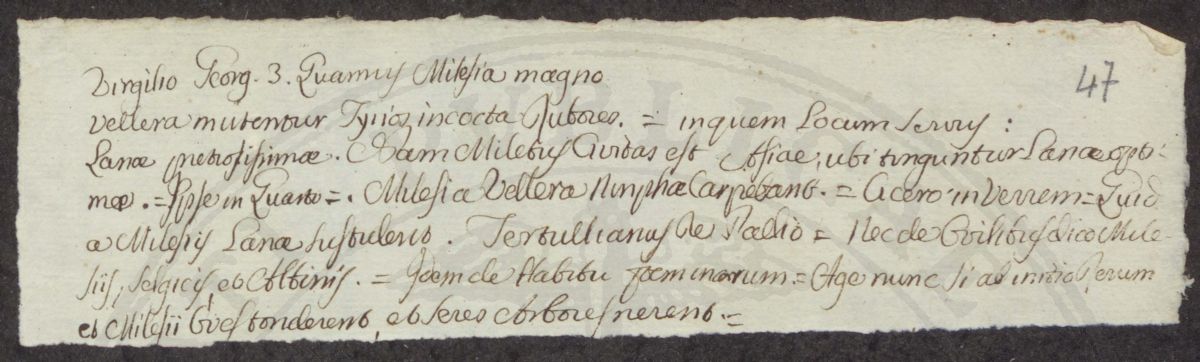 Virgilio Georg. 3. Quamvis Milesia magno
vellera mutentur Tyrios incocta Rubores. = in quem Locum Servius :
Lanæ pretiosissimæ. Nam Miletus Civitas est Asiae, ubi tinguntur Lanæ opti-
mæ. = Ipse in Quarto =. Milesia Vellera Nimphæ Carpebant. = Cicero in Verrem = Quid
a Milesiis Lanæ sustulerit. Tertullianus De Pallio = Nec de Ovilibus dico Mile-
siis, Selgicis, et Altinis. = Idem de Habitu fœminarum = Age nunc si ab initio rerum
et Milesii Oves tonderent, et Seres Arbores nerent. =
47